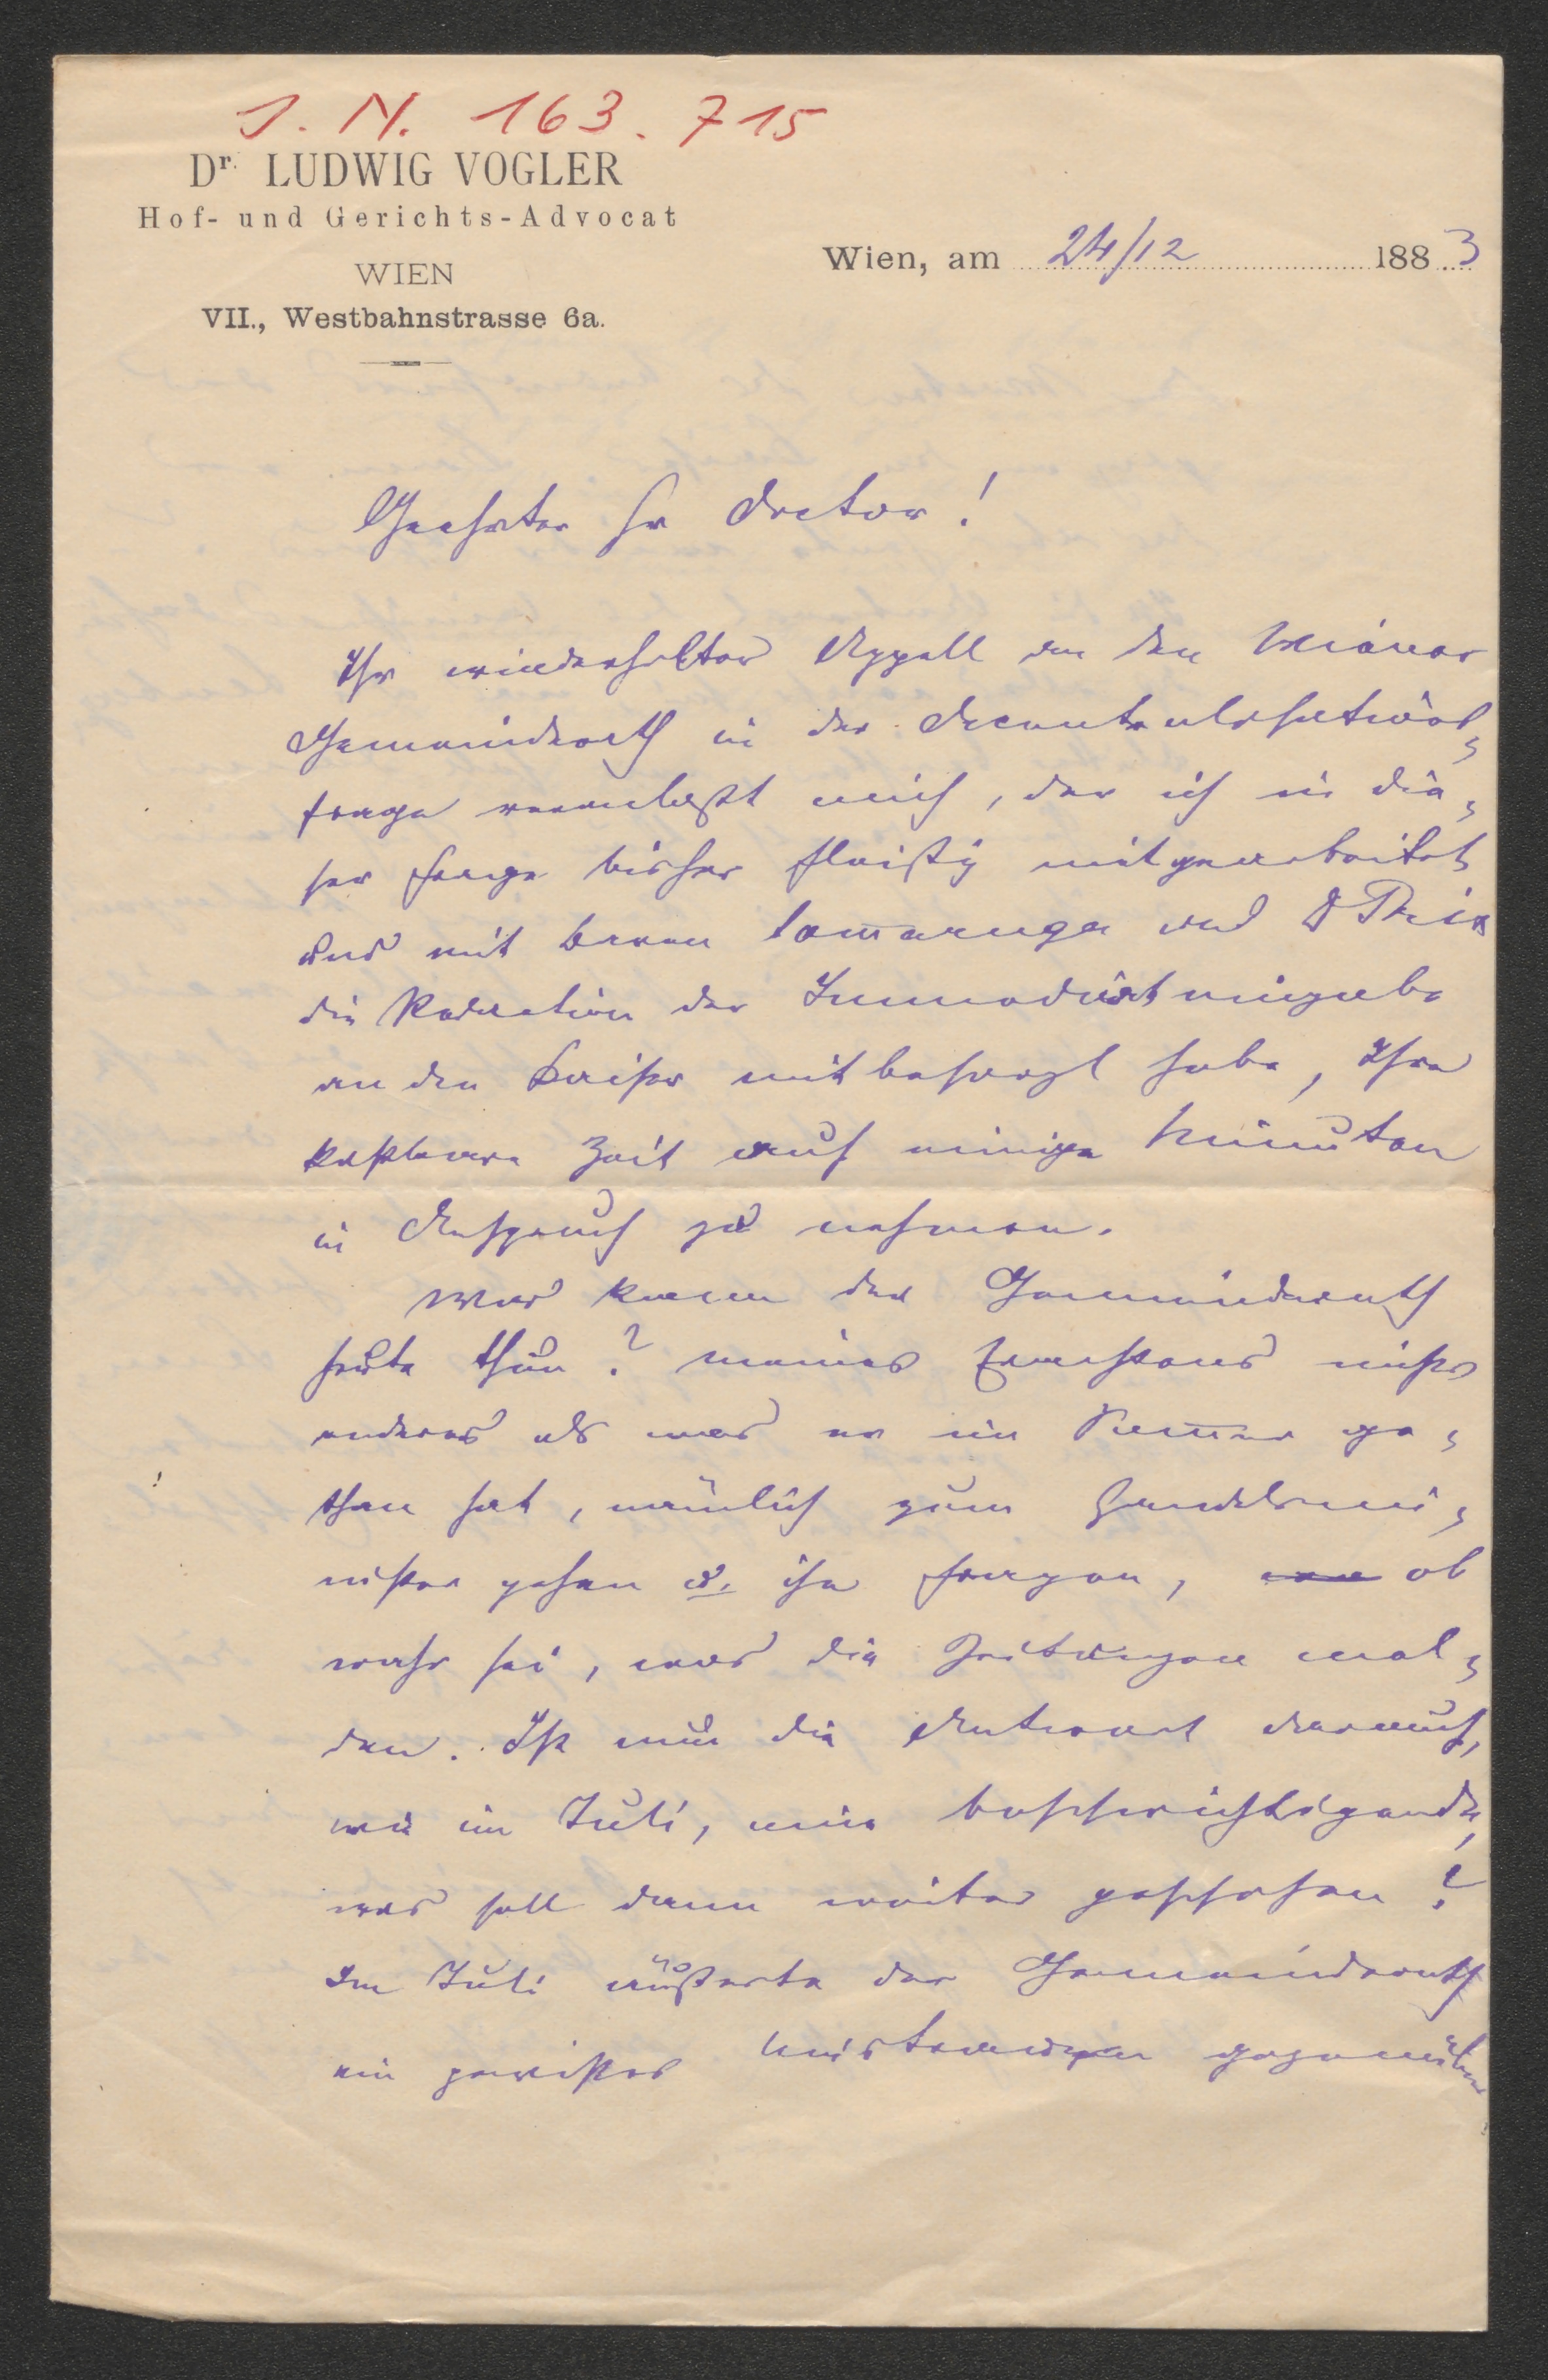 I. N. 163.715
Dr. LUDWIG VOGLER
Hof- und Gerichts-Advocat
WIEN
VII., Westbahnstrasse 6a.
Wien, am 24/12 1883
Geehrter Hr Doctor!
Ihr wiederholter Appell an den Wiener
Gemeinderath in der
frage veranlaßt mich, der ich in die-
ser Frage bisher fleißig mitgearbeitet
und mit Baron Sommaruga und Dr Prix
die Redaction der Immediateingabe
an den Kaiser mitbesorgt habe, Ihre
kostbare Zeit auf einige Minuten
in Anspruch zu nehmen.
Was kann der Gemeinderath
heute thun? meines Erachtens nichts
anderes als was er im Sommer ge-
than hat, nämlich zum Handelsmi-
nister gehen u. ihn fragen, ob
wahr sei, was die Zeitungen mel-
den. Ist nun die Antwort darauf,
wie im Juli, eine beschwichtigende,
was soll dann weiter geschehen?
Im Juli äußerte der Gemeinderath
ein gewißes Mistrauen gegenüber